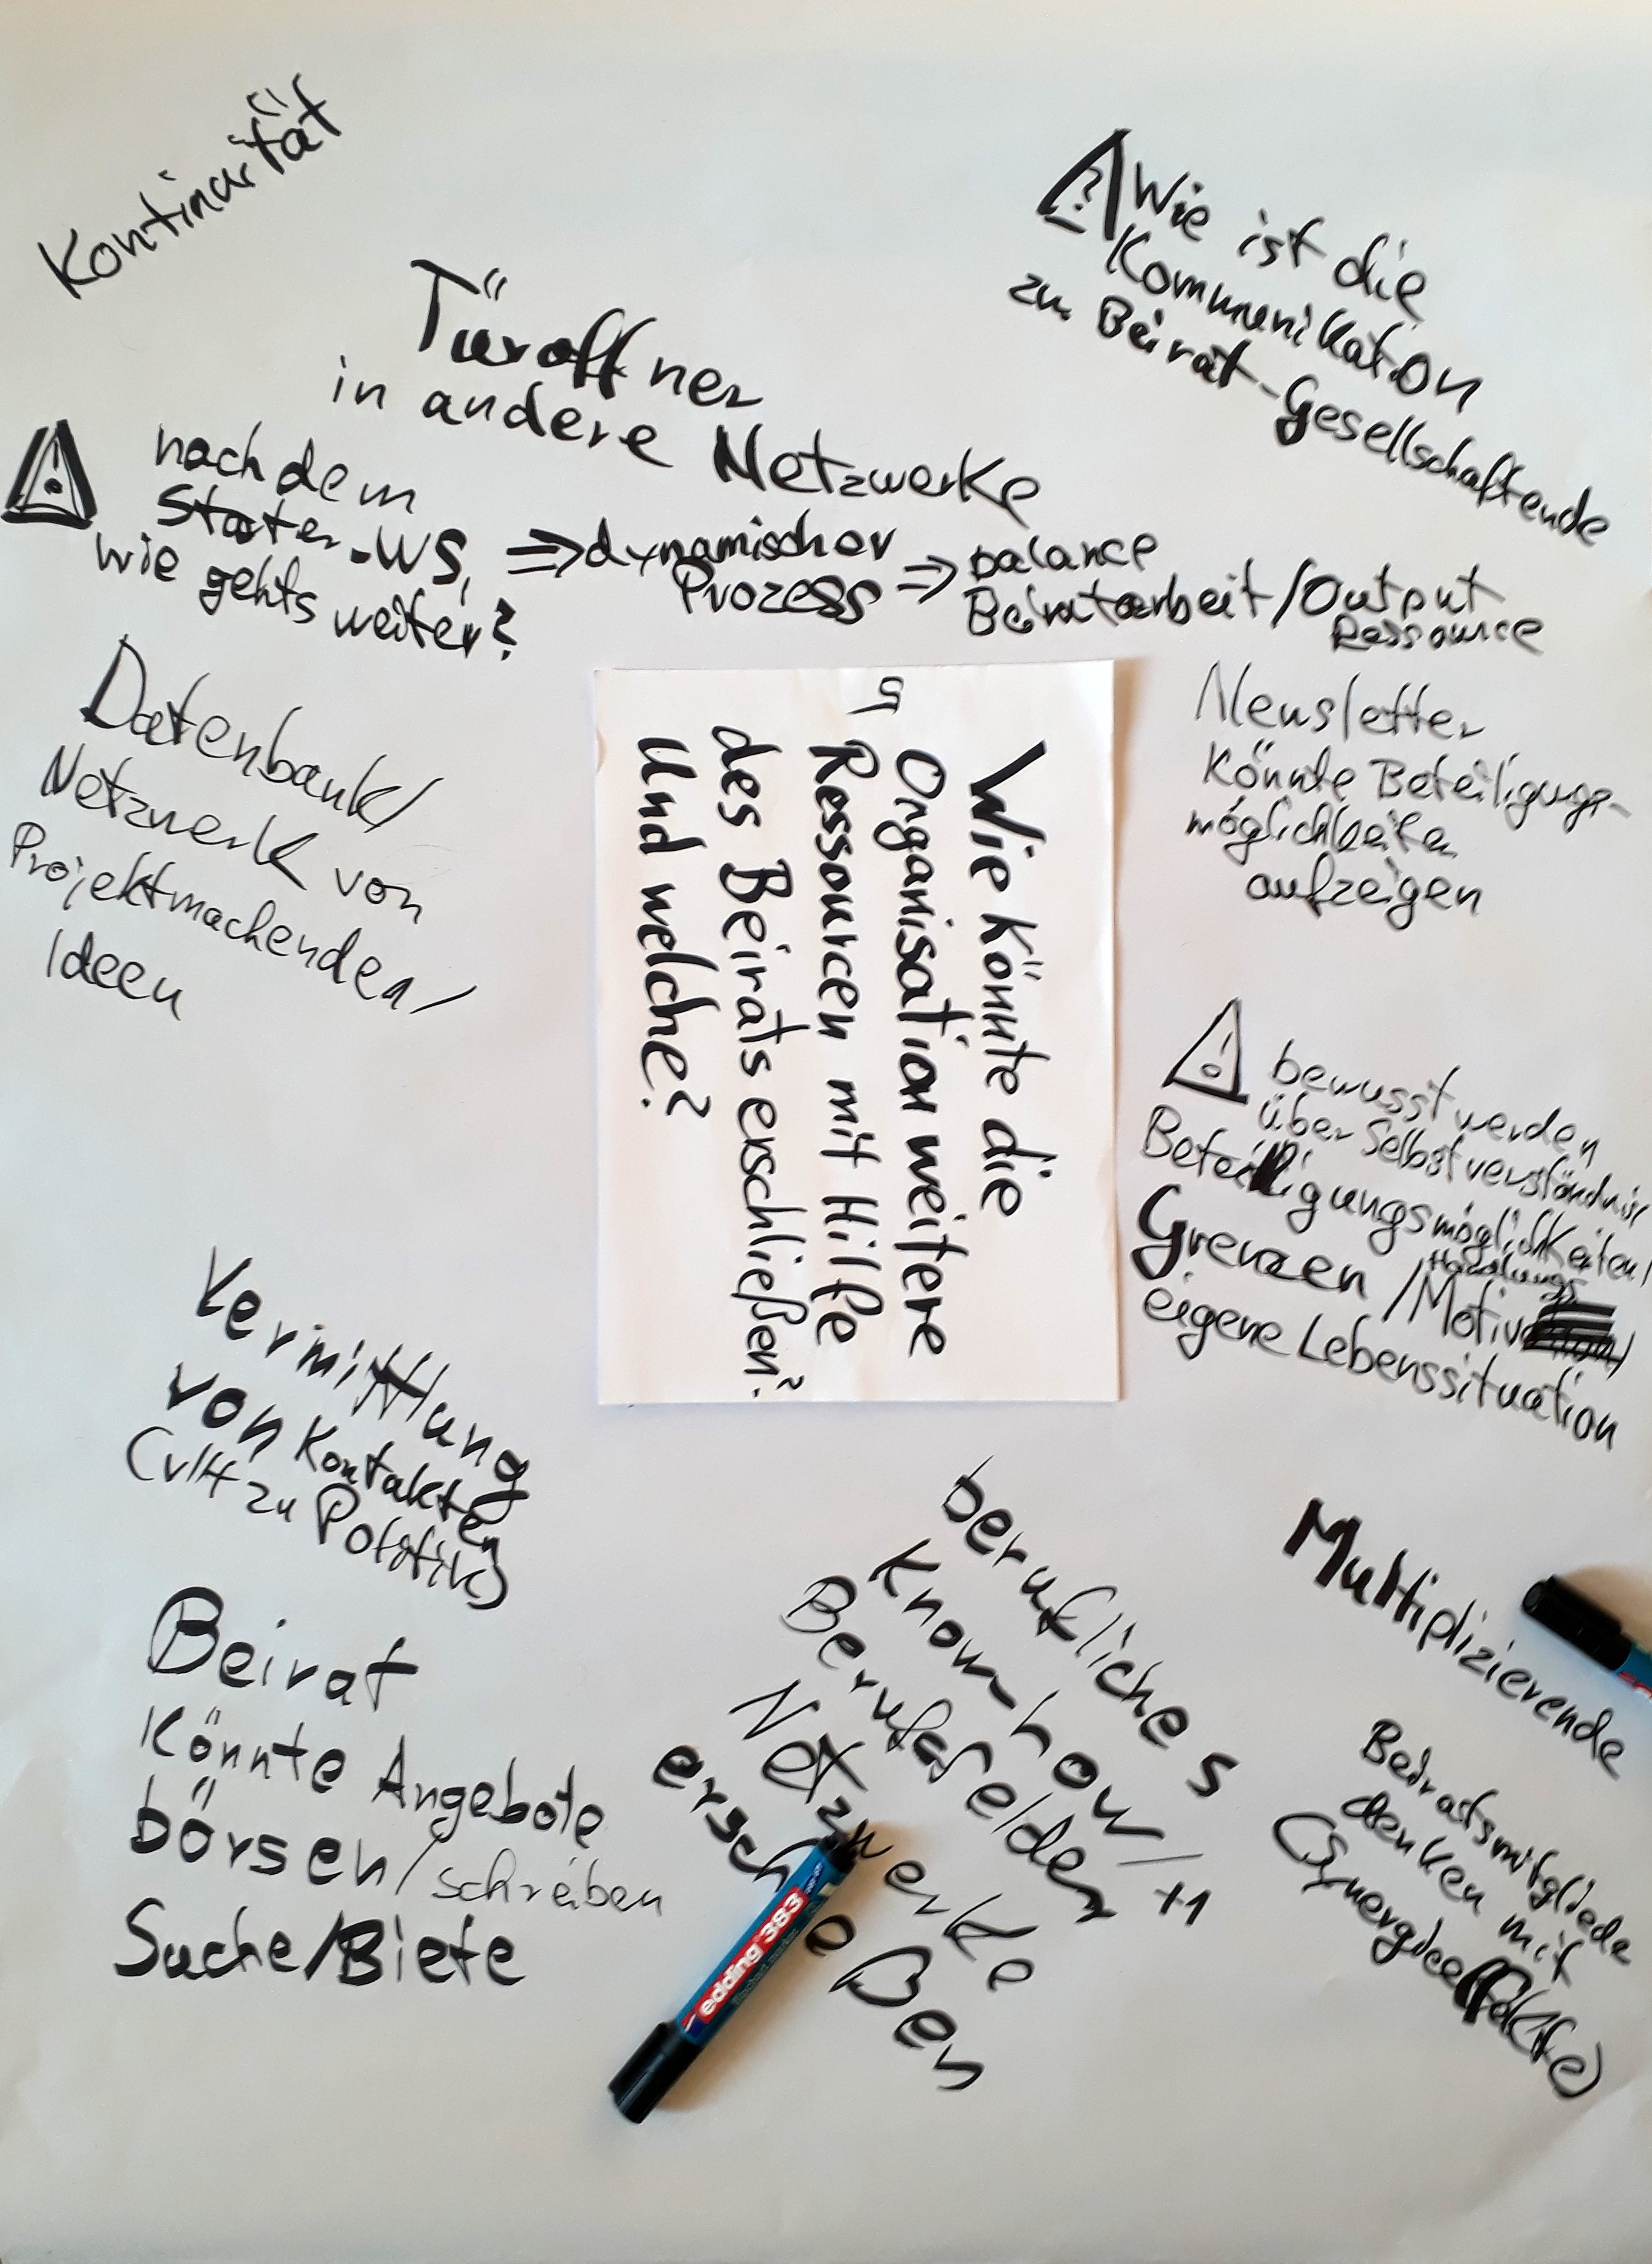 Kontinuität
Türöffner
in andere Netzwerke
?
Wie ist die
Kommunikation
zu Beirat-Gesellschaftende
!
nach dem
Starter-WS,
wie gehts weiter?
⇒ dynamischer
Prozess
⇒ balance
Beiratarbeit/Output
Ressource
Datenbank/
Netzwerk von
Projektmachenden/
Ideen
5
Wie könnte die
Organisation weitere
Ressourcen mit Hilfe
des Beirats erschließen?
Und welche?
Newsletter
könnte Beteiligungs-
möglichkeiten
aufzeigen
!
bewusst werden
über Selbstverständnis
Beteiligungsmöglichkeiten/
Grenzen / Handlungs
Motiv
eigene Lebenssituation
Vermittlung
von Kontakten
zu
Beirat
könnte Angebote
börsen/schreiben
Suche/Biete
berufliches
Knowhow/
Berufsfelder +1
Netzwerke
erschließen
edding 383
Multiplizierende
Beiratsmitgliede
denken mit
(Synergieeffekte)